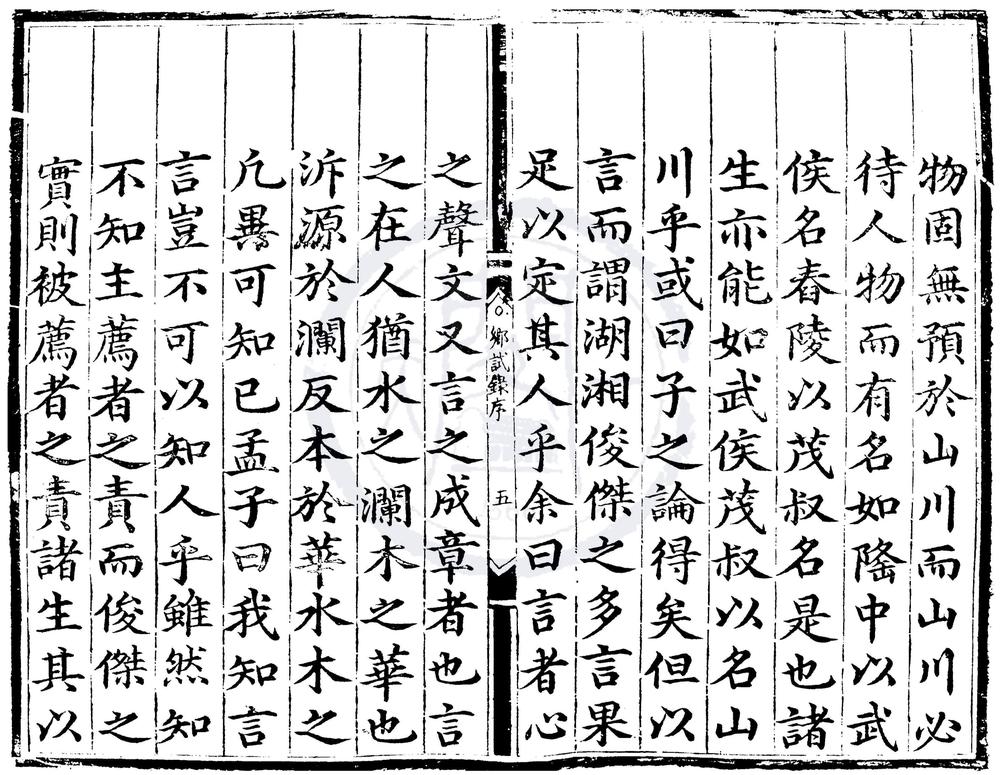 物固無預於山川而山川必
待人物而有名如隆中以武
侯名舂陵以茂叔名是也諸
生亦能如武侯茂叔以名山
川乎或曰子之論得矣但以
言而謂湖湘俊傑之多言果
足以定其人乎余曰言者心
鄉試錄序
五
之聲文又言之成章者也言
之在人猶水之瀾木之華也
泝源於瀾反本於華水木之
凡異可知已孟子曰我知言
言豈不可以知人乎雖然知
不知主薦者之責而俊傑之
實則被薦者之責諸生其以